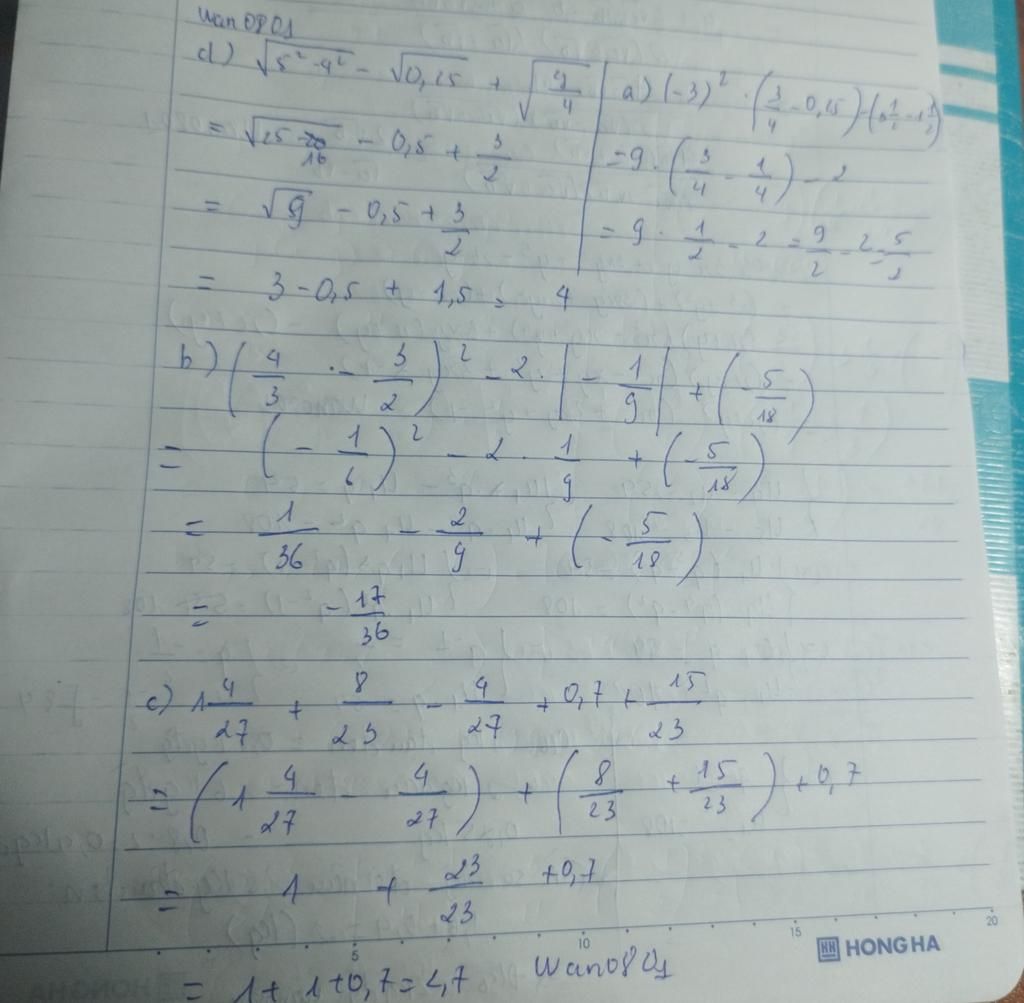 wan0801
d) √(5² - 4²) - √0,25 + √(9/4)
= √(25 - 16) - 0,5 + 3/2
= √9 - 0,5 + 3/2
= 3 - 0,5 + 1,5 = 4
a) (-3)² · (3/4 - 0,25) -
= 9 · (3/4 - 1/4) - 2
= 9 · 1/2 - 2 = 9/2 - 2 = 5/2
b) (4/3 - 3/2)² - 2 · |-1/9| + (-5/18)
= (-1/6)² - 2 · 1/9 + (-5/18)
= 1/36 - 2/9 + (-5/18)
= -17/36
c) 1 4/27 + 8/23 - 4/27 + 0,7 + 15/23
= (1 4/27 - 4/27) + (8/23 + 15/23) + 0,7
= 1 + 23/23 + 0,7
5 10 15 20
HONG HA
= 1 + 1 + 0,7 = 2,7
Wan0801